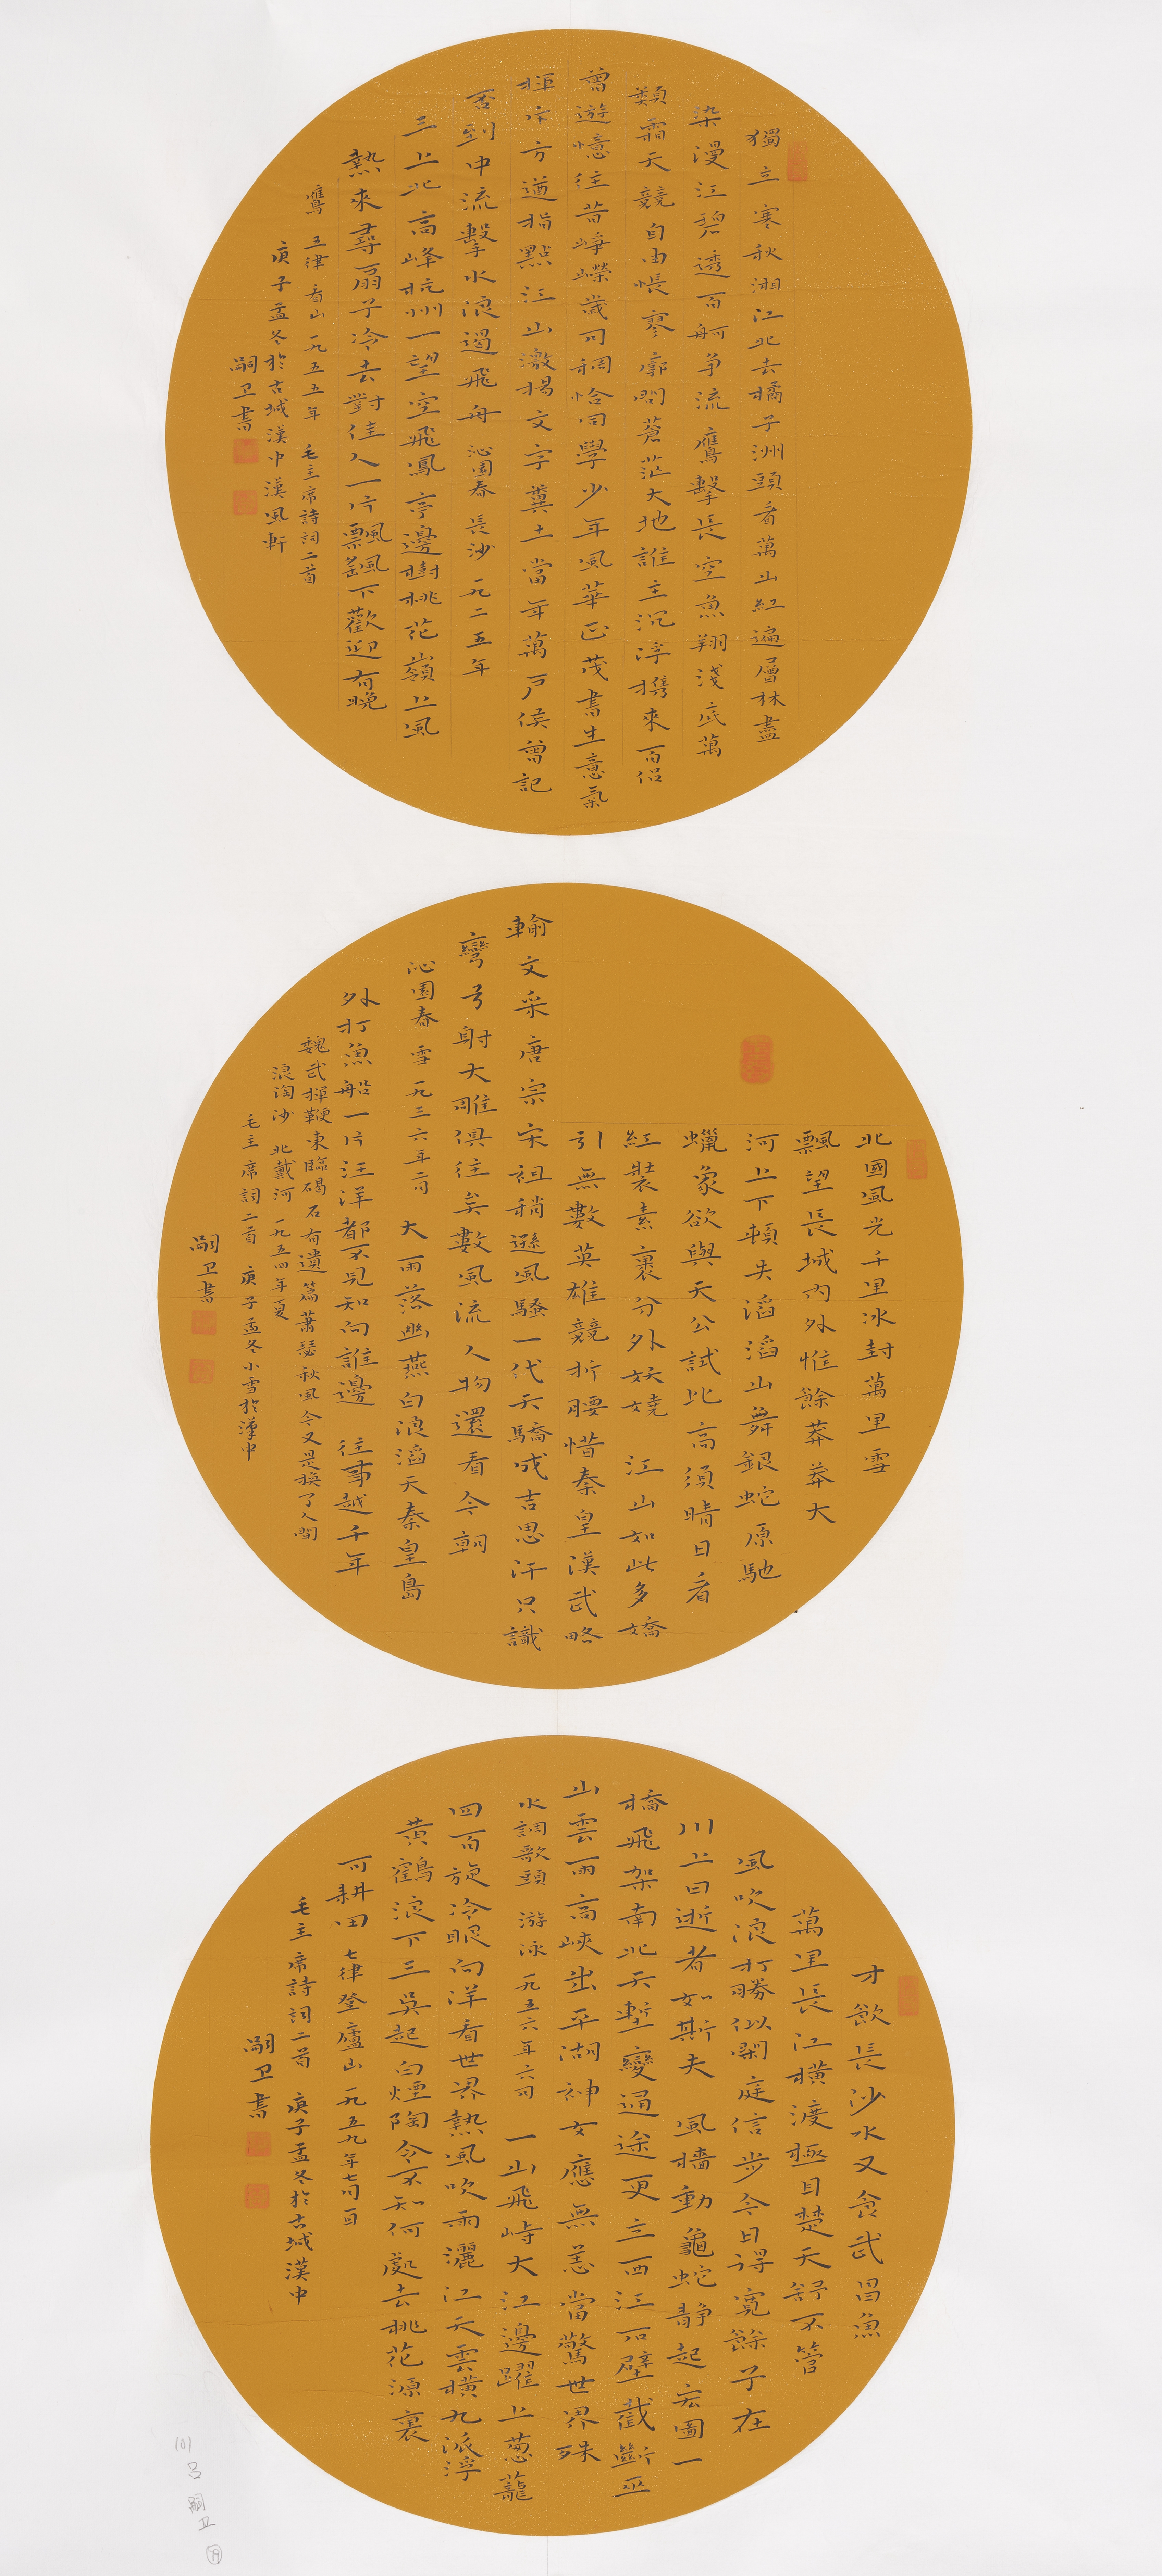 獨立寒秋湘江北去橘子洲頭看萬山紅遍層林盡
染漫江碧透百舸争流鷹擊長空魚翔淺底萬
類霜天競自由悵寥廓問蒼茫大地誰主沉浮攜來百侣
曾遊憶往昔崢嶸歲月稠恰同學少年風華正茂書生意氣
揮斥方遒指點江山激揚文字糞土當年萬戶侯曾記
否到中流擊水浪遏飛舟 沁園春 長沙 一九二五年
三上北高峰杭州一望空飛鳳亭邊樹桃花嶺上風
熱來尋扇子冷去對佳人一片飄颻下歡迎有晚
鷹 五律 看山 一九五五年 毛主席詩詞二首
庚子孟冬於古城漢中漢風軒
嗣卫書
北國風光千里冰封萬里雪
飄望長城内外惟餘莽莽大
河上下頓失滔滔山舞銀蛇原馳
蠟象欲與天公試比高須晴日看
紅裝素裹分外妖嬈 江山如此多嬌
引無數英雄競折腰惜秦皇漢武略
輸文采唐宗宋祖稍遜風騷一代天驕成吉思汗只識
彎弓射大雕俱往矣數風流人物還看今朝
沁園春 雪 一九三六年二月 大雨落幽燕白浪滔天秦皇島
外打魚船一片汪洋都不見知向誰邊 往事越千年
魏武揮鞭東臨碣石有遺篇蕭瑟秋風今又是换了人間
浪淘沙 北戴河 一九五四年夏
毛主席詞二首 庚子孟冬小雪於漢中
嗣卫書
才飲長沙水又食武昌魚
萬里長江横渡極目楚天舒不管
風吹浪打勝似閑庭信步今日得寬餘子在
川上曰逝者如斯夫 風檣動龜蛇静起宏圖一
橋飛架南北天塹變通途更立西江石壁截斷巫
山雲雨高峽出平湖神女應無恙當驚世界殊
水調歌頭 游泳 一九五六年六月 一山飛峙大江邊躍上葱蘢
四百旋冷眼向洋看世界熱風吹雨灑江天雲横九派浮
黃鶴浪下三吳起白煙陶令不知何處去桃花源裏
可耕田 七律登廬山 一九五九年七月一日
毛主席詩詞二首 庚子孟冬於古城漢中
嗣卫書
101 吕嗣卫